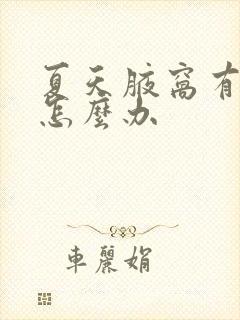 夏天腋窩有
怎麼办
車麗娟